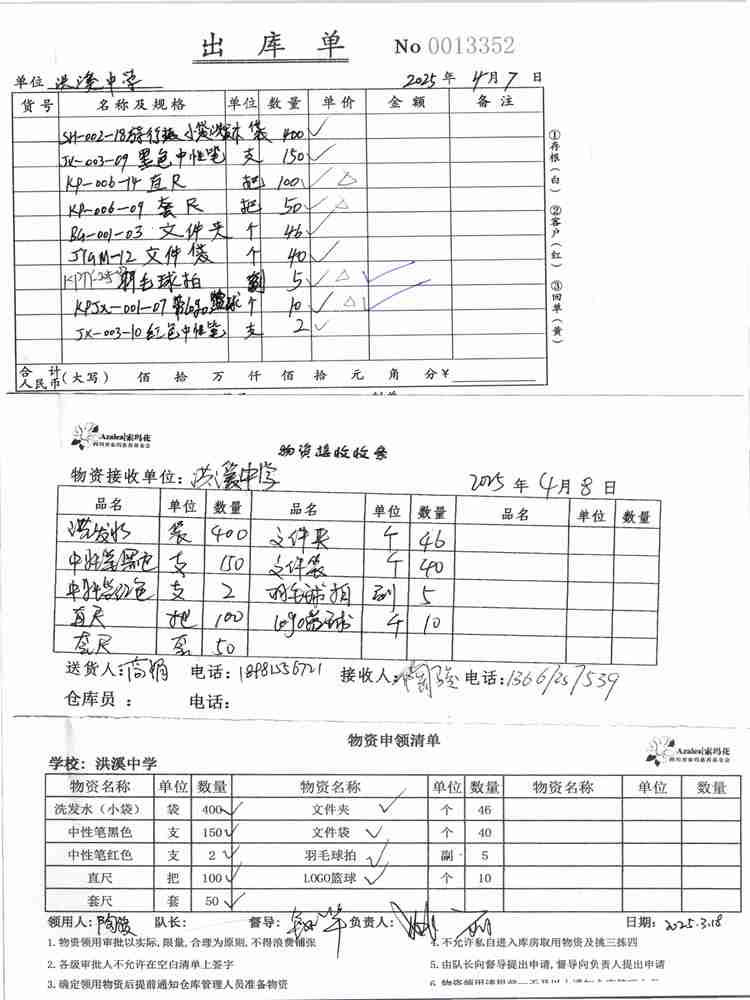 出 库 单 No 0013352
单位 洪溪中学 2025 年 4 月 7 日
货号 名称及规格 单位 数量 单价 金额 备注
SH-002-18 小袋 袋 400 ✓
JX-003-09 黑色中性笔 支 150 ✓
KP-006-14 直尺 把 100 ✓ △
KP-006-09 套尺 把 50 ✓ △
BG-001-03 文件夹 个 46 ✓
JYGM-12 文件袋 个 40 ✓
羽毛球拍 副 5 ✓ △ ✓
KPJX-001-07 logo篮球 个 10 ✓ △ ✓
JX-003-10 红色中性笔 支 2 ✓
①存根(白) ②客户(红) ③回单(黄)
合计人民币(大写) 佰 拾 万 仟 佰 拾 元 角 分 ¥
Azalea|索玛花
四川省索玛慈善基金会
物资接收收条
物资接收单位: 洪溪中学 2025 年 4 月 8 日
品名 单位 数量 品名 单位 数量 品名 单位 数量
洗发水 袋 400 文件夹 个 46
中性笔黑色 支 150 文件袋 个 40
中性笔红色 支 2 羽毛球拍 副 5
直尺 把 100 logo篮球 个 10
套尺 套 50
送货人: 高娟 电话: 18981556721 接收人: 陶骏 电话: 13667257539
仓库员: 电话:
物资申领清单
Azalea|索玛花
四川省索玛慈善基金会
学校: 洪溪中学
物资名称 单位 数量 物资名称 单位 数量 物资名称 单位 数量
洗发水(小袋) 袋 400 ✓ 文件夹 ✓ 个 46
中性笔黑色 支 150 ✓ 文件袋 ✓ 个 40
中性笔红色 支 2 ✓ 羽毛球拍 ✓ 副 5
直尺 把 100 ✓ LOGO篮球 ✓ 个 10
套尺 套 50 ✓
领用人: 陶骏 队长: 督导: 负责人: 日期: 2025.3.18
1. 物资领用审批以实际,限量,合理为原则,不得浪费铺张 4. 不允许私自进入库房取用物资及挑三拣四
2. 各级审批人不允许在空白清单上签字 5. 由队长向督导提出申请,督导向负责人提出申请
3. 确定领用物资后提前通知仓库管理人员准备物资